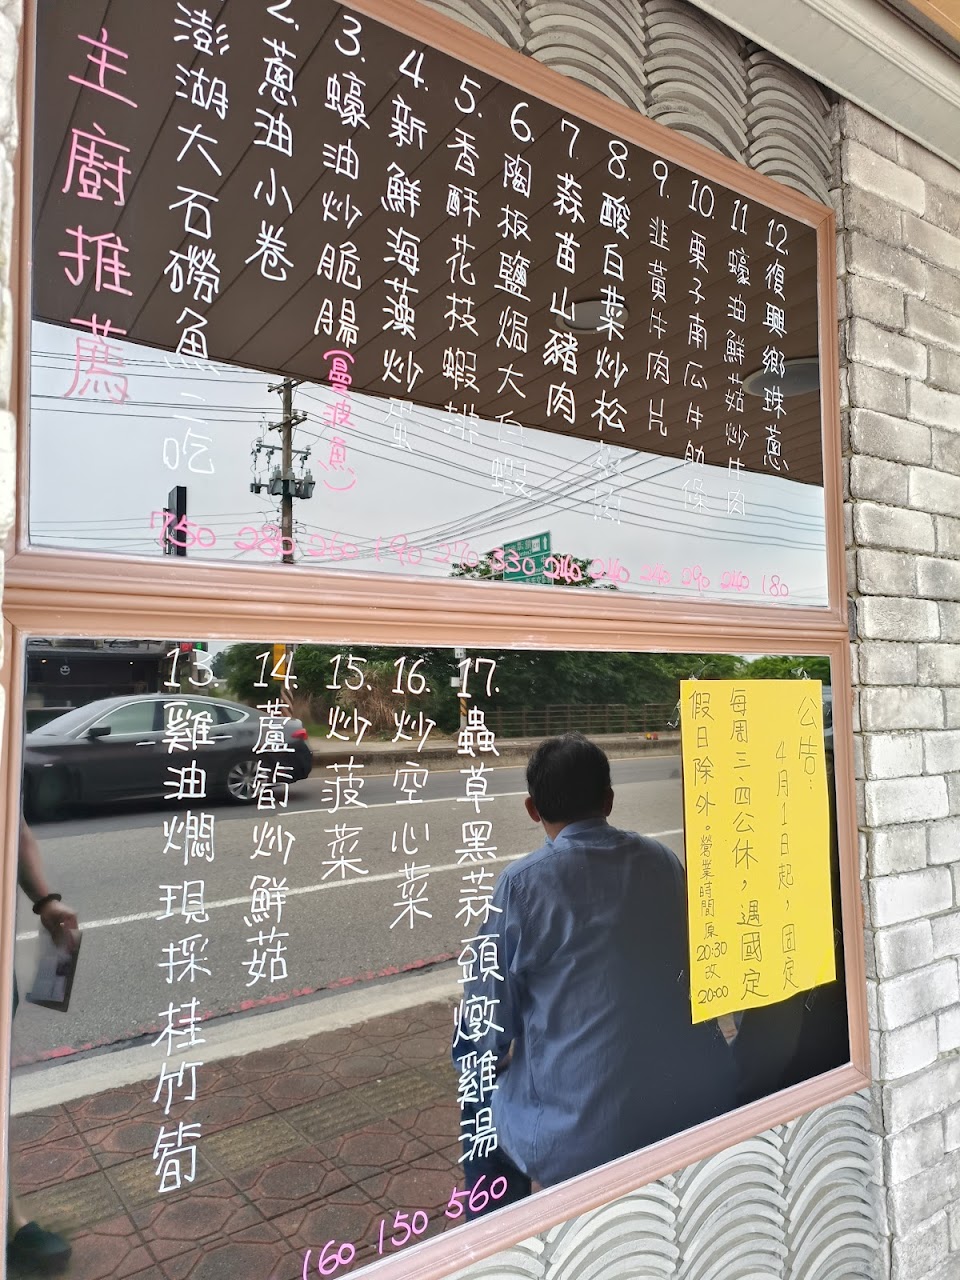 主廚推薦
澎湖大石磱魚二吃
750
2.蔥油小卷
280
3.蠔油炒脆腸(曼波魚)
260
4.新鮮海藻炒蛋
190
5.香酥花枝蝦排
270
6.陶板鹽焗大白蝦
330
7.蒜苗山豬肉
240
8.酸白菜炒松
240
9.韭黃牛肉片
240
10.栗子南瓜牛肋條
290
11蠔油鮮菇炒牛肉
240
12.復興鄉珠蔥
180
13.雞油燜現採桂竹筍
14.蘆筍炒鮮菇
15.炒菠菜
160
16.炒空心菜
150
17.蟲草黑蒜頭燉雞湯
560
公告:
4月1日起,固定
每周三、四公休,遇國定
假日除外。營業時間原20:30改20:00